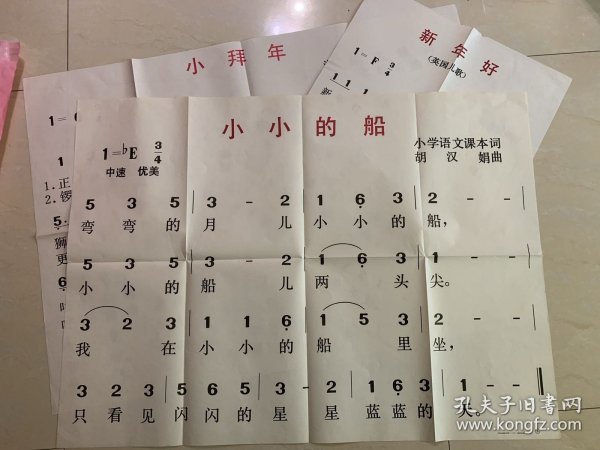 小拜年
新年好
(英国儿歌)
1=F 3/4
1 1 1
新
1
1.正
2.锣
5
狮
更
6
小小的船
1=♭E 3/4
中速 优美
小学语文课本词
胡汉娟曲
5 3 5 | 3 - 2 | 1 6̣ 3 | 2 - - |
弯弯的月儿小小的船,
5 3 5 | 3 - 2 | 1 6̣ 3 | 2 - - |
小小的船儿两头尖。
3 2 3 | 1 1 6̣ | 1 5 3 | 2 - - |
我在小小的船里坐,
3 2 3 | 5 6 5 | 3 - 2 | 1 6̣ 3 | 1 - - ‖
只看见闪闪的星星蓝蓝的天。
孔夫子旧书网
www.kongfz.com